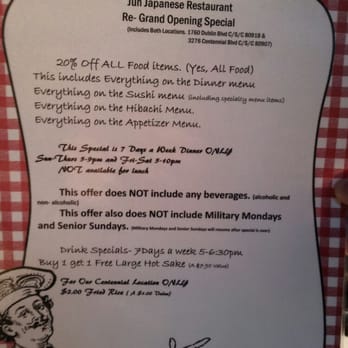 Jun Japanese Restaurant
Re- Grand Opening Special
(Includes Both Locations. 1760 Dublin Blvd C/S/C 80918 &
3276 Centennial Blvd C/S/C 80907)
20% Off ALL Food items. (Yes, All Food)
This includes Everything on the Dinner menu
Everything on the Sushi menu (including specialty menu items)
Everything on the Hibachi Menu.
Everything on the Appetizer Menu.
This Special is 7 Days a Week Dinner ONLY
Sun-Thurs 5-9pm and Fri-Sat 5-10pm
NOT available for lunch
This offer does NOT include any beverages. (alcoholic and
non- alcoholic)
This offer also does NOT include Military Mondays
and Senior Sundays. (Military Mondays and Senior Sundays will resume after special is over)
Drink Specials- 7Days a week 5-6:30pm
Buy 1 get 1 Free Large Hot Sake (A $7.50 Value)
For Our Centennial Location ONLY
$2.00 Fried Rice ( A $3.00 Value)